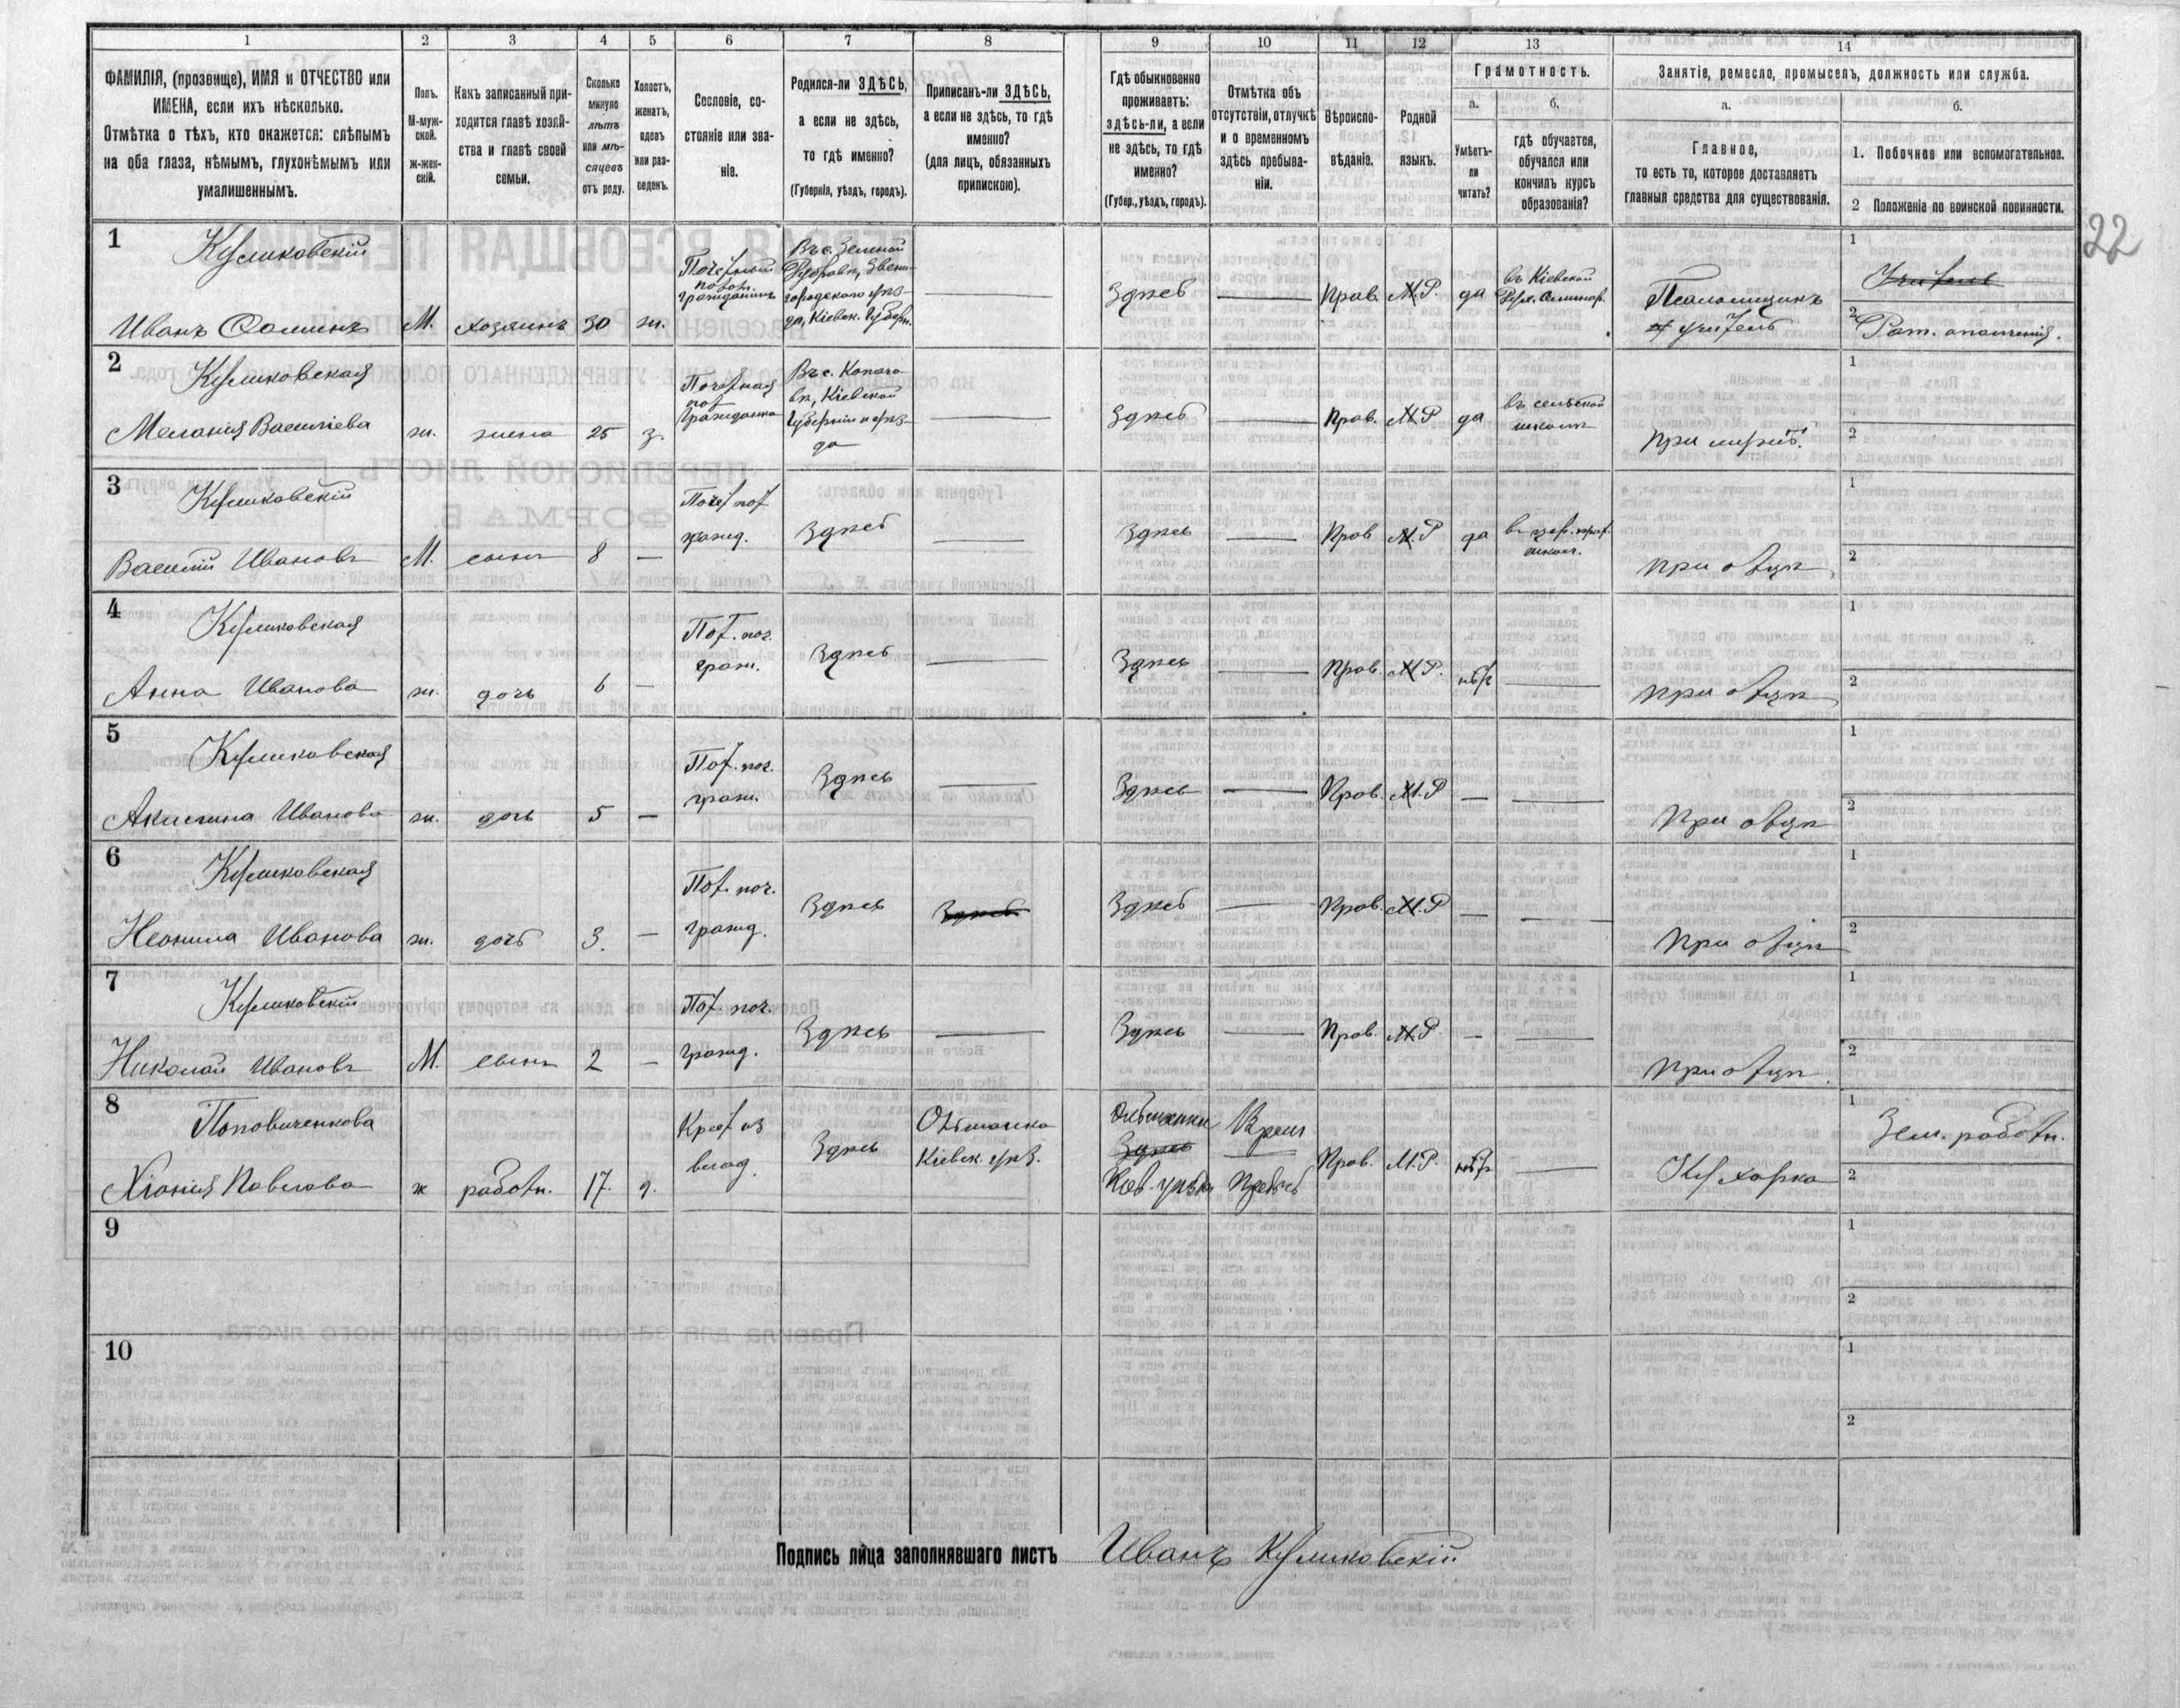 1 2 3 4 5 6 7 8 9 10 11 12 13 14
ФАМИЛІЯ, (прозвище), ИМЯ и ОТЧЕСТВО или
ИМЕНА, если ихъ нѣсколько.
Отмѣтка о тѣхъ, кто окажется: слѣпымъ
на оба глаза, нѣмымъ, глухонѣмымъ или
умалишеннымъ.
Полъ.
М-муж-
ской.
ж-жен-
скій.
Какъ записанный при-
ходится главѣ хозяй-
ства и главѣ своей
семьи.
Сколько
минуло
лѣтъ
или мѣ-
сяцевъ
отъ роду.
Холостъ,
женатъ,
вдовъ
или раз-
веденъ.
Сословіе, со-
стояніе или зва-
ніе.
Родился-ли ЗДѢСЬ,
а если не здѣсь,
то гдѣ именно?
(Губернія, уѣздъ, городъ).
Приписанъ-ли ЗДѢСЬ,
а если не здѣсь, то гдѣ
именно?
(для лицъ, обязанныхъ
припискою).
Гдѣ обыкновенно
проживаетъ:
здѣсь-ли, а если
не здѣсь, то гдѣ
именно?
(Губер., уѣздъ, городъ).
Отмѣтка объ
отсутствіи, отлучкѣ
и о временномъ
здѣсь пребыва-
ніи.
Вѣроиспо-
вѣданіе.
Родной
языкъ.
Грамотность.
а.
Умѣетъ-
ли
читать?
б.
гдѣ обучается,
обучался или
кончилъ курсъ
образованія?
Занятіе, ремесло, промыселъ, должность или служба.
а.
Главное,
то есть то, которое доставляетъ
главныя средства для существованія.
б.
1. Побочное или вспомогательное.
2 Положеніе по воинской повинности.
22
1
Куликовскій
Иванъ Фоминъ
М. хозяинъ 30 ж.
Почетный
потом.
гражданинъ
Въ с. Зеленой
Дубровкѣ, Звени-
городскаго уѣз-
да, Кіевск. Губерн.
Здѣсь
Прав. М.Р. да
въ Кіевской
Дух. Семинар.
Псаломщикъ
учитель
1 Учитель
2 Рат. ополченія.
2
Куликовская
Меланія Васильева
ж. жена 25 з.
Почетная
пот
гражданка
Въ с. Копачо
вѣ, Кіевской
Губерніи и уѣз-
да
Здѣсь
Прав. М.Р да
въ сельской
школѣ
при мужѣ.
1
2
3
Куликовскій
Василій Ивановъ
М. сынъ 8 —
Почет пот
гражд.
Здѣсь
Здѣсь
Прав М.Р да
въ церк. прих.
школ.
при отцѣ
1
2
4
Куликовская
Анна Иванова
ж. дочь 6 —
Пот. поч.
граж.
Здѣсь
Здѣсь
Прав. М.Р. нѣт
при отцѣ
1
2
5
Куликовская
Акилина Иванова
ж. дочь 5 —
Пот. поч.
граж.
Здѣсь
Здѣсь
Прав. М.Р —
При отцѣ
1
2
6
Куликовская
Неонила Иванова
ж. дочь 3. —
Пот. поч.
гражд.
Здѣсь
Здѣсь
Здѣсь
Прав. М.Р —
При отцѣ
1
2
7
Куликовскій
Николай Ивановъ
М. сынъ 2 —
Пот. поч.
гражд.
Здѣсь
Здѣсь
Прав. М.Р. —
При отцѣ
1
2
8
Поповиченкова
Хіонія Павлова
ж работн. 17. д.
Крест из
влад.
Здѣсь
Ольшанка
Кіевск. уѣз.
Ольшанки
Здѣсь
Кіев. уѣзда
Врем
Пребыв
Прав. М.Р. нѣт
Кухарка
1 Зем. работн.
2
9
1
2
10
1
2
Подпись лица заполнявшаго листъ Иванъ Куликовскій